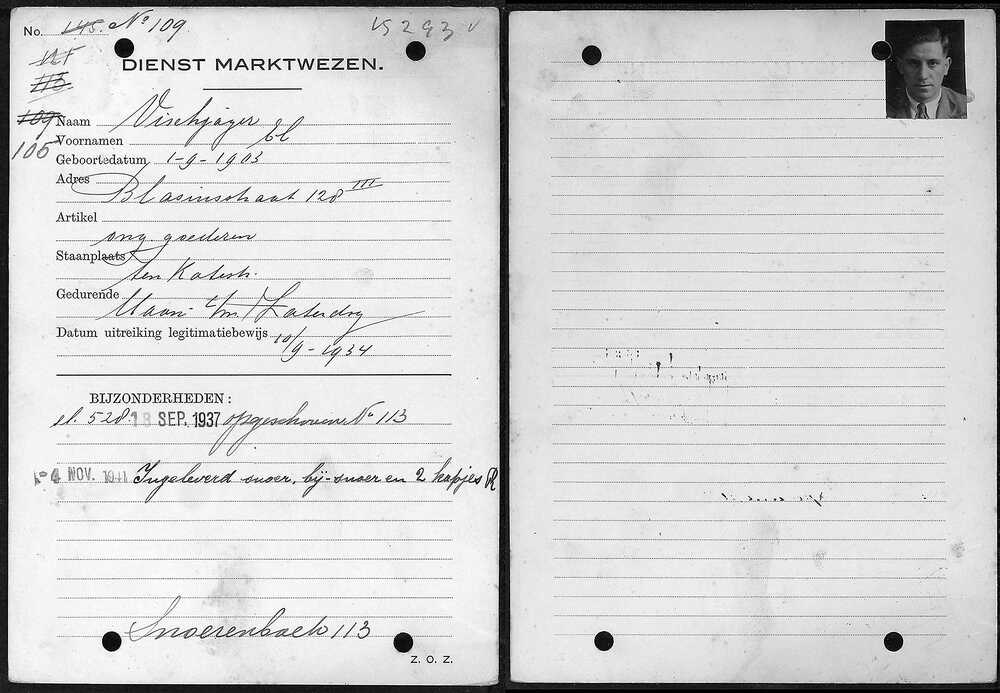 No. 145. No 109 15293 v
115
113.
DIENST MARKTWEZEN.
109 Naam Vischjager
105 Voornamen El
Geboortedatum 1-9-1903
Adres
Blasiusstraat 128 III
Artikel
ong. goederen
Staanplaats
ten Katestr.
Gedurende
Maan- t/m Zaterdag
Datum uitreiking legitimatiebewijs 10/9-1934
BIJZONDERHEDEN:
el. 528. 18 SEP. 1937 opgeschoven No 113
-4 NOV. 1941 Ingeleverd snoer, bij-snoer en 2 kapjes R
Snoerenboek 113
Z. O. Z.